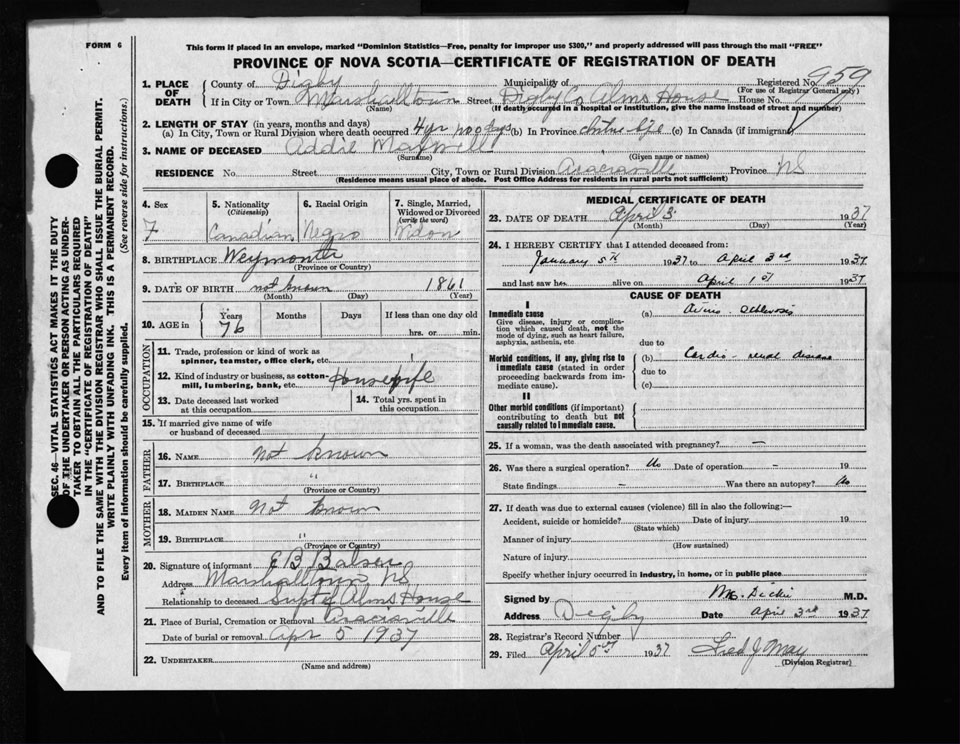 FORM 6
This form if placed in an envelope, marked "Dominion Statistics—Free, penalty for improper use $300," and properly addressed will pass through the mail "FREE"
PROVINCE OF NOVA SCOTIA—CERTIFICATE OF REGISTRATION OF DEATH
1. PLACE OF DEATH County of Digby Municipality of Registered No. 959
(For use of Registrar General only)
If in City or Town Marshalltown Street Digby Co Alms House House No.
(Name) (If death occurred in a hospital or institution, give the name instead of street and number)
2. LENGTH OF STAY (in years, months and days)
(a) In City, Town or Rural Division where death occurred 4 yr days (b) In Province entire life (c) In Canada (if immigrant)
3. NAME OF DECEASED Addie Maxwell
(Surname) (Given name or names)
RESIDENCE No. Street City, Town or Rural Division Acaciaville Province NS
(Residence means usual place of abode. Post Office Address for residents in rural parts not sufficient)
4. Sex 5. Nationality (Citizenship) 6. Racial Origin 7. Single, Married, Widowed or Divorced (write the word)
F Canadian Negro Widow
8. BIRTHPLACE Weymouth
(Province or Country)
9. DATE OF BIRTH not known 1861
(Month) (Day) (Year)
10. AGE in Years Months Days If less than one day old
76 hrs. or min.
OCCUPATION
11. Trade, profession or kind of work as spinner, teamster, office clerk, etc.
12. Kind of industry or business, as cotton-mill, lumbering, bank, etc. Housewife
13. Date deceased last worked at this occupation 14. Total yrs. spent in this occupation
15. If married give name of wife or husband of deceased
FATHER
16. NAME Not known
17. BIRTHPLACE "
(Province or Country)
MOTHER
18. MAIDEN NAME Not known
19. BIRTHPLACE "
(Province or Country)
20. Signature of informant E B Balser
Address Marshalltown NS
Relationship to deceased Supt Alms House
21. Place of Burial, Cremation or Removal Acaciaville
Date of burial or removal Apr 5 1937
22. UNDERTAKER
(Name and address)
MEDICAL CERTIFICATE OF DEATH
23. DATE OF DEATH April 3 1937
(Month) (Day) (Year)
24. I HEREBY CERTIFY that I attended deceased from:
January 5th 1937 to April 3rd 1937
and last saw her alive on April 1st 1937
CAUSE OF DEATH
I
Immediate cause
Give disease, injury or complication which caused death, not the mode of dying, such as heart failure, asphyxia, asthenia, etc
(a)
due to
Morbid conditions, if any, giving rise to immediate cause (stated in order proceeding backwards from immediate cause).
(b) Cardio-renal disease
due to
(c)
II
Other morbid conditions (if important) contributing to death but not causally related to immediate cause.
25. If a woman, was the death associated with pregnancy? —
26. Was there a surgical operation? No Date of operation – 19
State findings – Was there an autopsy? No
27. If death was due to external causes (violence) fill in also the following:—
Accident, suicide or homicide? Date of injury 19
(State which)
Manner of injury
(How sustained)
Nature of injury
Specify whether injury occurred in industry, in home, or in public place
Signed by M.D.
Address Digby Date April 3rd 1937
28. Registrar's Record Number
29. Filed April 5th 1937 Fred J May
(Division Registrar)
SEC. 46—VITAL STATISTICS ACT MAKES IT THE DUTY
OF THE UNDERTAKER OR PERSON ACTING AS UNDER-
TAKER TO OBTAIN ALL THE PARTICULARS REQUIRED
IN THE "CERTIFICATE OF REGISTRATION OF DEATH"
AND TO FILE THE SAME WITH THE DIVISION REGISTRAR WHO SHALL ISSUE THE BURIAL PERMIT.
WRITE PLAINLY WITH UNFADING INK. THIS IS A PERMANENT RECORD.
Every item of information should be carefully supplied. (See reverse side for instructions.)